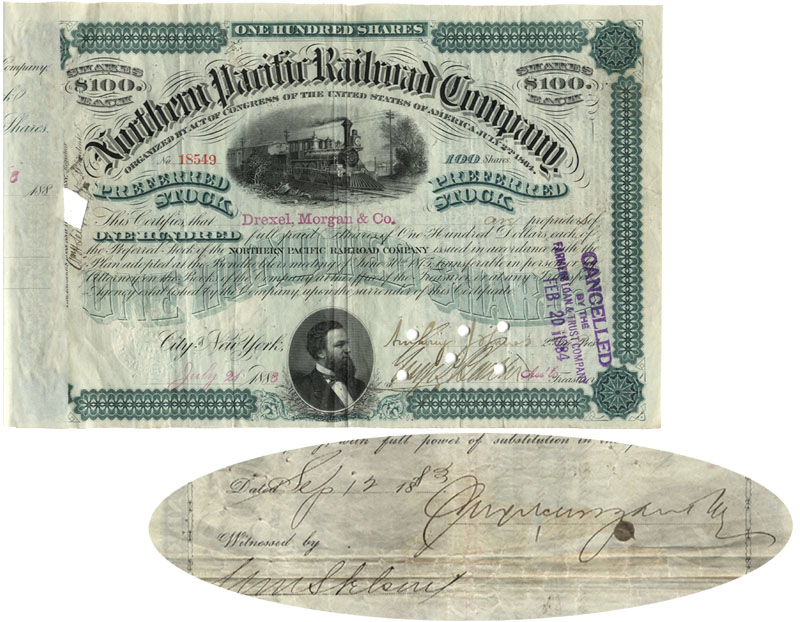 ONE HUNDRED SHARES
Company.
SHARES $100. EACH
SHARES $100. EACH
Northern Pacific Railroad Company,
ORGANIZED BY ACT OF CONGRESS OF THE UNITED STATES OF AMERICA, JULY 2ND 1864.
Shares.
No. 18549
100 Shares
188
PREFERRED STOCK
PREFERRED STOCK
This Certifies that Drexel, Morgan & Co. are proprietors of
ONE HUNDRED full paid Shares of One Hundred Dollars each, of
the Preferred Stock of the NORTHERN PACIFIC RAILROAD COMPANY issued in accordance with the
Plan adopted by the Bondholders June 30th 1875 transferable in person or by
Attorney in the Books of the Company at the office of the Treasurer or at any Transfer
Agency established by the Company, upon the surrender of this Certificate
ONE HUNDRED SHARES
CANCELLED
BY THE
FARMERS LOAN & TRUST COMPANY
FEB 20 1884
City of New York,
July 21 1883
Treasurer
with full power of substitution in the
Dated Sep 12 1883
Witnessed by